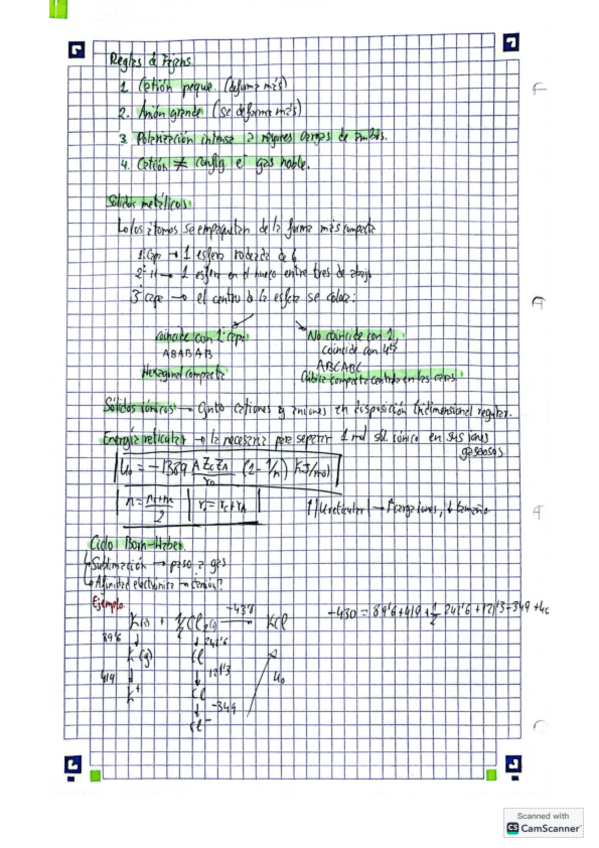 Reglas d Fajans
1. Catión peque. (deforma más)
2. Anión grande (se deforma más)
3. Polarización intensa a mayores cargas de ambos.
4. Catión ≠ config e⁻ gas noble.
Sólidos metálicos:
Los átomos se empaquetan de la forma más compacta
1ª Capa → 1 esfera rodeada de 6
2ª " → 1 esfera en el hueco entre tres de abajo
3ª capa → el centro d la esfera se coloca:
coincide con 1ª capa:
ABABAB
Hexagonal compacta
No coincide con 1,
coincide con 4ª
ABCABC
Cúbica compacta centrada en las caras
Sólidos iónicos → Cjnto cationes y aniones en disposición tridimensional regular.
Energía reticular → la necesaria para separar 1 mol sól. iónico en sus iones
gaseosos
U₀ = -1389 A Zc ZA / r₀ (1 - 1/n) KJ/mol
n = nc+nA / 2 r₀ = rc + rA
↑|Ureticular| → ↑carga iones, ↓tamaño
Ciclo Born-Haber.
Sublimación → paso a gas
Afinidad electrónica →
Ejemplo
K(s) + ½Cl₂(g) → KCl
-430 = 89'6+419+½ 242'6+121'3-349+
89'6
K(g)
419
K⁺
Cl
121'3
Cl
-349
Cl⁻
U₀
Scanned with
CS CamScanner